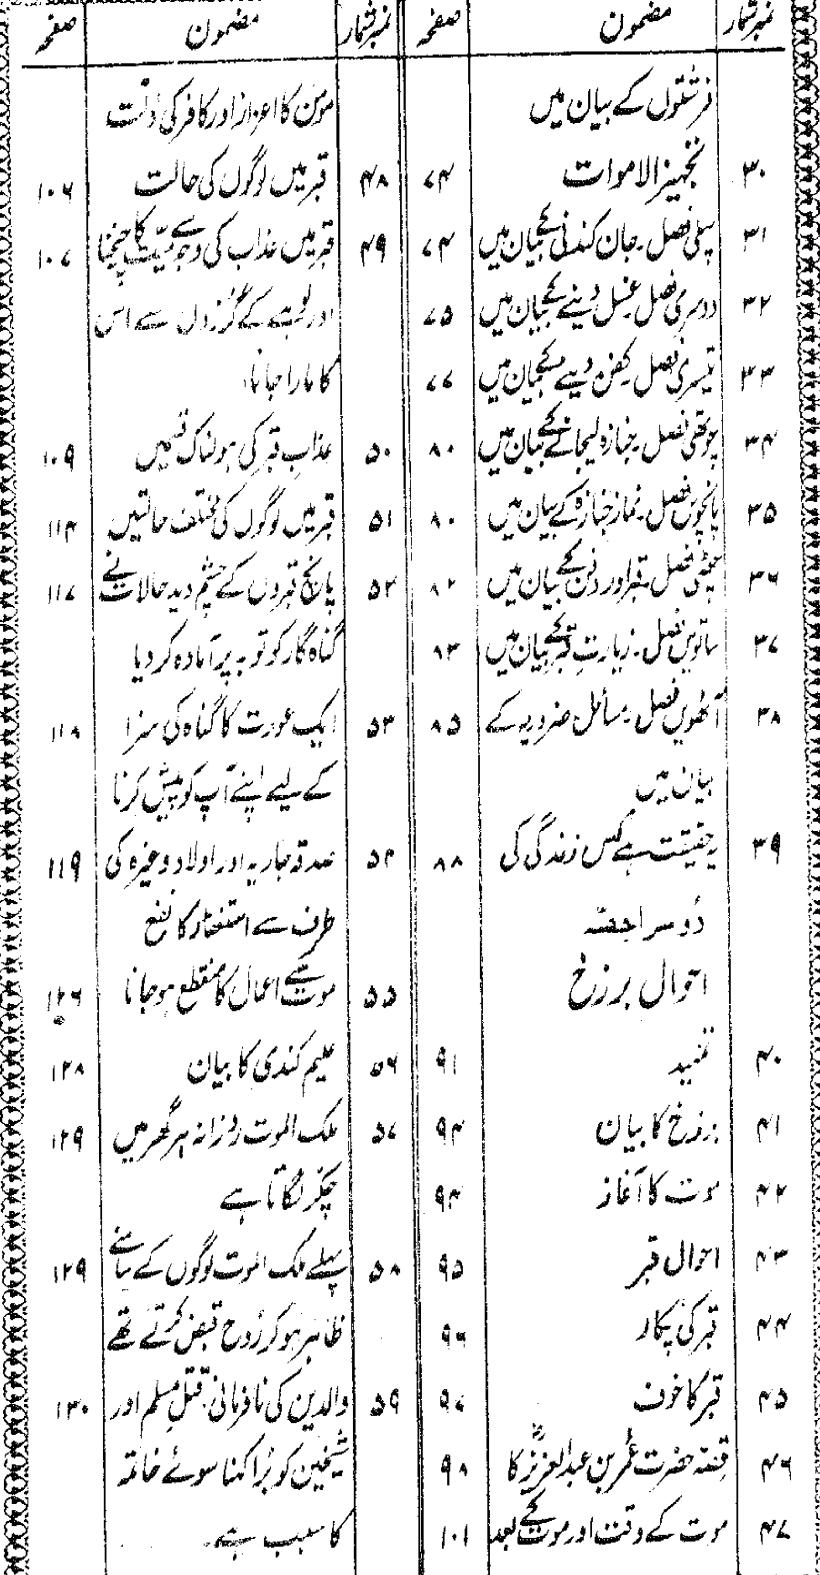 نمبر شمار مضمون صفحہ
فرشتوں کے بیان میں
۳۰ تجہیز الاموات ۷۴
۳۱ پہلی فصل۔ جان کندنی کے بیان میں ۷۴
۳۲ دوسری فصل۔ غسل دینے کے بیان میں ۷۵
۳۳ تیسری فصل۔ کفن دینے کے بیان میں ۷۷
۳۴ چوتھی فصل۔ جنازہ لیجانے کے بیان میں ۸۰
۳۵ پانچویں فصل۔ نماز جنازہ کے بیان میں ۸۰
۳۶ چھٹی فصل۔ قبر اور دفن کے بیان میں ۸۲
۳۷ ساتویں فصل۔ زیارت قبر کے بیان میں ۸۳
۳۸ آٹھویں فصل۔ مسائل ضروریہ کے ۸۵
بیان میں
۳۹ یہ حقیقت ہے کس زندگی کی ۸۸
دوسرا حصّہ
احوال برزخ
۴۰ تمہید ۹۱
۴۱ برزخ کا بیان ۹۴
۴۲ موت کا آغاز ۹۴
۴۳ احوال قبر ۹۵
۴۴ قبر کی پکار ۹۶
۴۵ قبر کا خوف ۹۷
۴۶ قصّہ حضرت عمر بن عبدالعزیزؒ کا ۹۸
۴۷ موت کے وقت اور موت کے بعد ۱۰۱
نمبر شمار مضمون صفحہ
مومن کا اعزاز اور کافر کی ذلّت
۴۸ قبر میں لوگوں کی حالت ۱۰۶
۴۹ قبر میں عذاب کی وجہ سے میّت کا چیخنا ۱۰۷
اور لوہے کے گرزوں سے اس
کا مارا جانا۔
۵۰ عذاب قبر کی ہولناک قسمیں ۱۰۹
۵۱ قبر میں لوگوں کی مختلف حالتیں ۱۱۴
۵۲ پانچ قبروں کے چشم دید حالات نے ۱۱۷
گناہ گار کو توبہ پر آمادہ کر دیا
۵۳ ایک عورت کا گناہ کی سزا ۱۱۸
کے لیے اپنے آپ کو پیش کرنا
۵۴ صدقہ جاریہ اور اولاد وغیرہ کی ۱۱۹
طرف سے استغفار کا نفع
۵۵ موت سے اعمال کا منقطع ہو جانا ۱۲۶
۵۶ علیم کندی کا بیان ۱۲۸
۵۷ ملک الموت روزانہ ہر گھر میں ۱۲۹
چکّر لگاتا ہے
۵۸ پہلے ملک الموت لوگوں کے سامنے ۱۲۹
ظاہر ہو کر رُوح قبض کرتے تھے
۵۹ والدین کی نافرمانی، قتل مسلم اور ۱۳۰
شیخین کو بُرا کہنا سوئے خاتمہ
کا سبب ہے۔